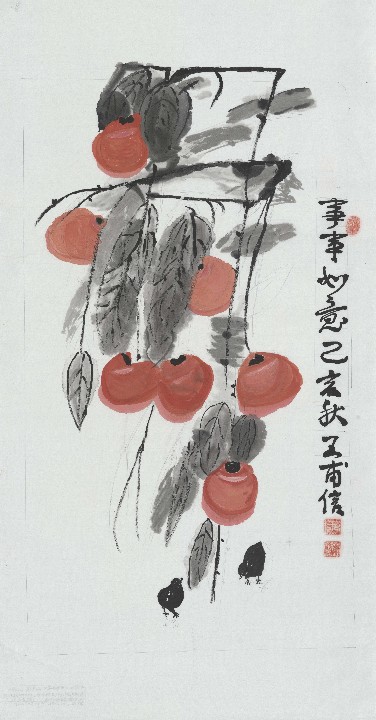 事事如意己亥秋王甫信